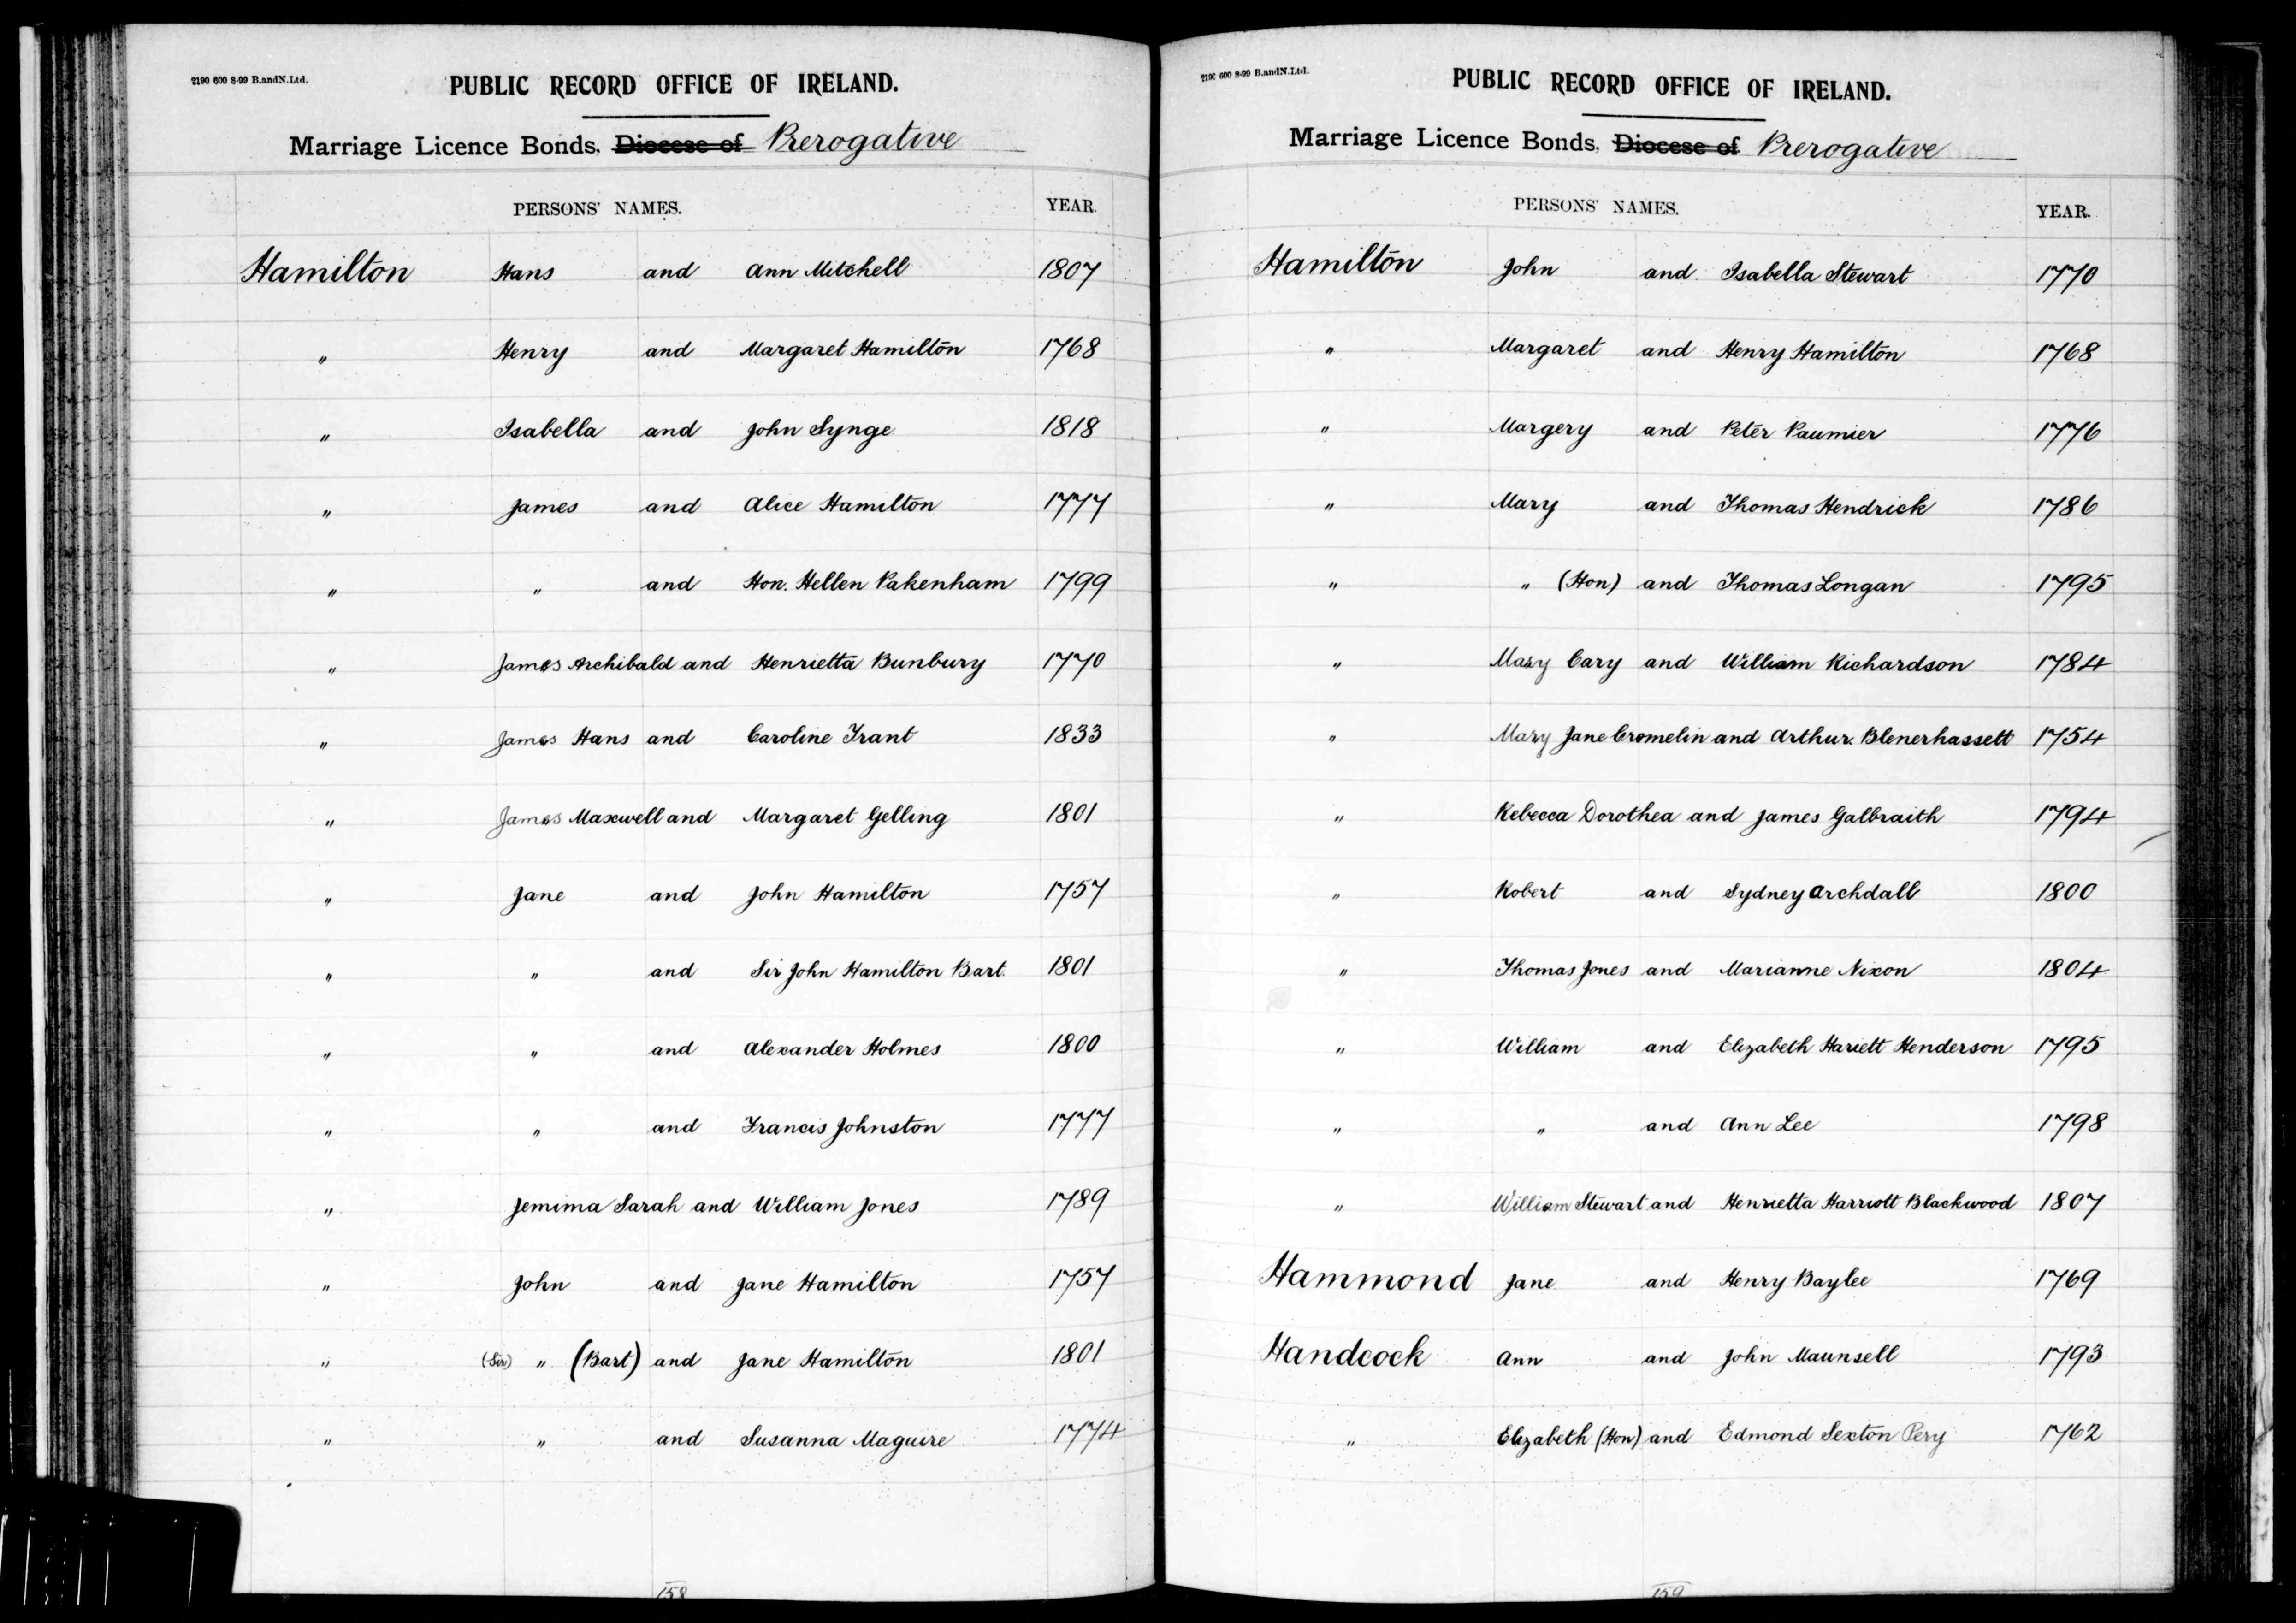 2190 600 8-99 B.andN.Ltd.
PUBLIC RECORD OFFICE OF IRELAND.
Marriage Licence Bonds, Diocese of Prerogative
PERSONS' NAMES. YEAR.
Hamilton Hans and Ann Mitchell 1807
" Henry and Margaret Hamilton 1768
" Isabella and John Synge 1818
" James and Alice Hamilton 1777
" " and Hon. Hellen Pakenham 1799
" James Archibald and Henrietta Bunbury 1770
" James Hans and Caroline Trant 1833
" James Maxwell and Margaret Gelling 1801
" Jane and John Hamilton 1757
" " and Sir John Hamilton Bart. 1801
" " and Alexander Holmes 1800
" " and Francis Johnston 1777
" Jemima Sarah and William Jones 1789
" John and Jane Hamilton 1757
" (Sir) " (Bart) and Jane Hamilton 1801
" " and Susanna Maguire 1774
158
2190 600 8-99 B.andN.Ltd.
PUBLIC RECORD OFFICE OF IRELAND.
Marriage Licence Bonds, Diocese of Prerogative
PERSONS' NAMES. YEAR.
Hamilton John and Isabella Stewart 1770
" Margaret and Henry Hamilton 1768
" Margery and Peter Paumier 1776
" Mary and Thomas Hendrick 1786
" " (Hon) and Thomas Longan 1795
" Mary Cary and William Richardson 1784
" Mary Jane Cromelin and Arthur Blenerhassett 1754
" Rebecca Dorothea and James Galbraith 1794
" Robert and Sydney Archdall 1800
" Thomas Jones and Marianne Nixon 1804
" William and Elizabeth Hariett Henderson 1795
" " and Ann Lee 1798
" William Stewart and Henrietta Harriott Blackwood 1807
Hammond Jane and Henry Baylee 1769
Handcock Ann and John Maunsell 1793
" Elizabeth (Hon) and Edmond Sexton Pery 1762
159